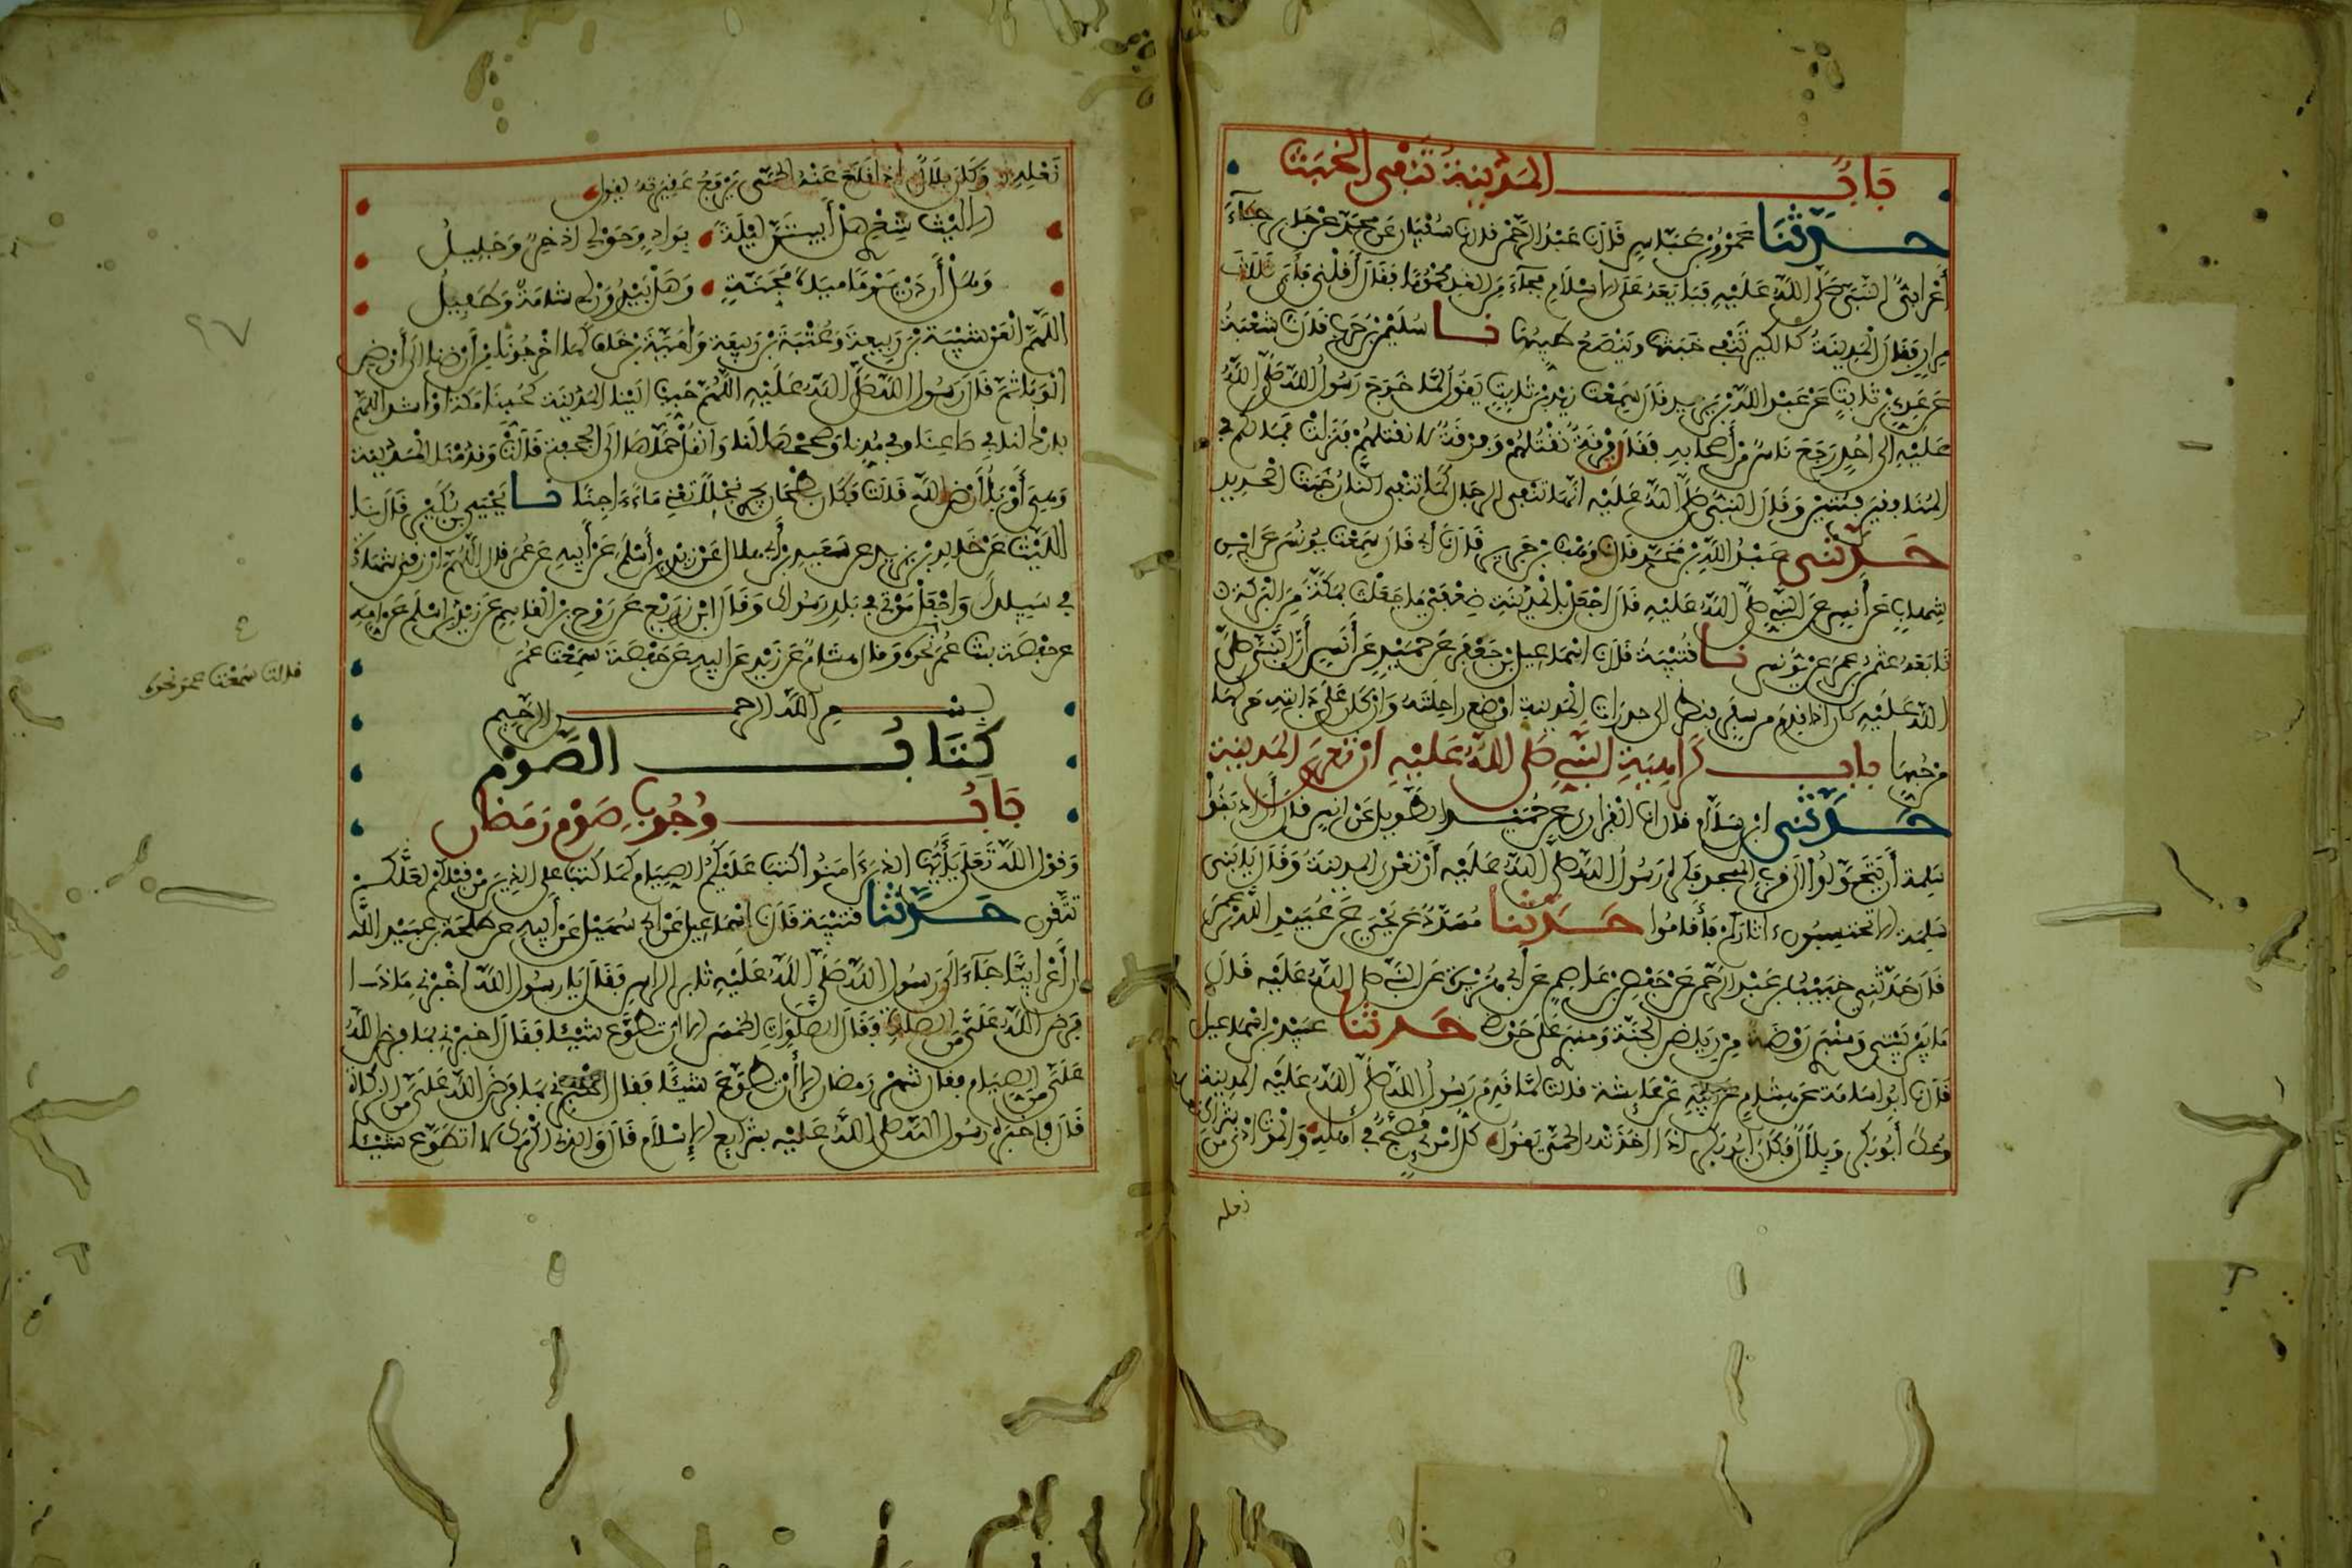 باب المدينة تنفي الخبث
حدثنا عمرو بن عباس قال نا عبد الرحمن قال نا سفيان عن محمد عن جابر جاء
أعرابي النبي صلى الله عليه فبايعه على الإسلام فجاء من الغد محموما فقال أقلني فأبى ثلاث
مرار فقال المدينة كالكير تنفي خبثها وينصع طيبها نا سليمن بن حرب قال نا شعبة
عن عدي بن ثابت عن عبد الله بن يزيد قال سمعت زيد بن ثابت يقول لما خرج رسول الله صلى الله
عليه إلى أحد رجع ناس من أصحابه فقال فرقة نقتلهم وفرقة لا نقتلهم فنزلت فما لكم في
المنافقين فئتين وقال النبي صلى الله عليه إنها تنفي الرجال كما تنفي النار خبث الحديد
حدثني عبد الله بن محمد قال نا وهب بن جرير قال نا أبي قال سمعت يونس عن ابن
شهاب عن أنس عن النبي صلى الله عليه قال اجعل بالمدينة ضعفي ما جعلت بمكة من البركة
تابعه عثمن بن عمر عن يونس نا قتيبة قال نا اسماعيل بن جعفر عن حميد عن أنس أن النبي صلى
الله عليه كان إذا قدم من سفر فنظر إلى جدرات المدينة أوضع راحلته وإن كان على دابة حركها
من حبها باب كراهية النبي صلى الله عليه أن تعرى المدينة
حدثني ابن سلام قال نا الفزاري عن حميد الطويل عن أنس قال أراد بنوا
سلمة أن يتحولوا إلى قرب المسجد فكره رسول الله صلى الله عليه أن تعرى المدينة وقال يا بني
سلمة ألا تحتسبون ءاثاركم فأقاموا حدثنا مسدد عن يحيى عن عبيد الله بن عمر
قال حدثني خبيب بن عبد الرحمن عن حفص بن عاصم عن أبي هريرة عن النبي صلى الله عليه قال
ما بين بيتي ومنبري روضة من رياض الجنة ومنبري على حوضي حدثنا عبيد بن اسماعيل
قال نا أبو أسامة عن هشام عن أبيه عن عائشة قالت لما قدم رسول الله صلى الله عليه المدينة
وعك أبو بكر وبلال فكان أبو بكر إذا أخذته الحمى يقول كل امرئ مصبح في أهله والموت أدنى من شراك
نعله
نعله وكان بلال إذا أقلع عنه الحمى يرفع عقيرته يقول
ألا ليت شعري هل أبيتن ليلة بواد وحولي إذخر وجليل
وهل أردن يوما مياه مجنة وهل يبدون لي شامة وطفيل
اللهم العن شيبة بن ربيعة وعتبة بن ربيعة وأمية بن خلف كما أخرجونا من أرضنا إلى أرض
الوباء ثم قال رسول الله صلى الله عليه اللهم حبب إلينا المدينة كحبنا مكة أو أشد اللهم
بارك لنا في صاعنا وفي مدنا وصححها لنا وانقل حماها إلى الجحفة قالت وقدمنا المدينة
وهي أوبأ أرض الله قالت فكان بطحان يجري نجلا تعني ماء ءاجنا نا يحيى بن بكير قال نا
الليث عن خالد بن يزيد عن سعيد بن أبي هلال عن زيد بن أسلم عن أبيه عن عمر قال اللهم ارزقني شهادة
في سبيلك واجعل موتي في بلد رسولك وقال ابن زريع عن روح بن القاسم عن زيد بن أسلم عن أمه
عن حفصة بنت عمر نحوه وقال هشام عن زيد عن أبيه عن حفصة سمعت عمر
قالت سمعت عمر نحوه
بسم الله الرحمن الرحيم
كتاب الصوم
باب وجوب صوم رمضان
وقول الله تعلى يأيها الذين ءامنوا كتب عليكم الصيام كما كتب على الذين من قبلكم لعلكم
تتقون حدثنا قتيبة قال نا اسماعيل عن أبي سهيل عن أبيه عن طلحة بن عبيد الله
أن أعرابيا جاء إلى رسول الله صلى الله عليه ثائر الرأس فقال يا رسول الله أخبرني ماذا
فرض الله علي من الصلاة فقال الصلوات الخمس إلا أن تطوع شيئا فقال أخبرني بما فرض الله
علي من الصيام فقال شهر رمضان إلا أن تطوع شيئا فقال أخبرني بما فرض الله علي من الزكاة
قال فأخبره رسول الله صلى الله عليه بشرايع الإسلام قال والذي أكرمك لا أتطوع شيئا